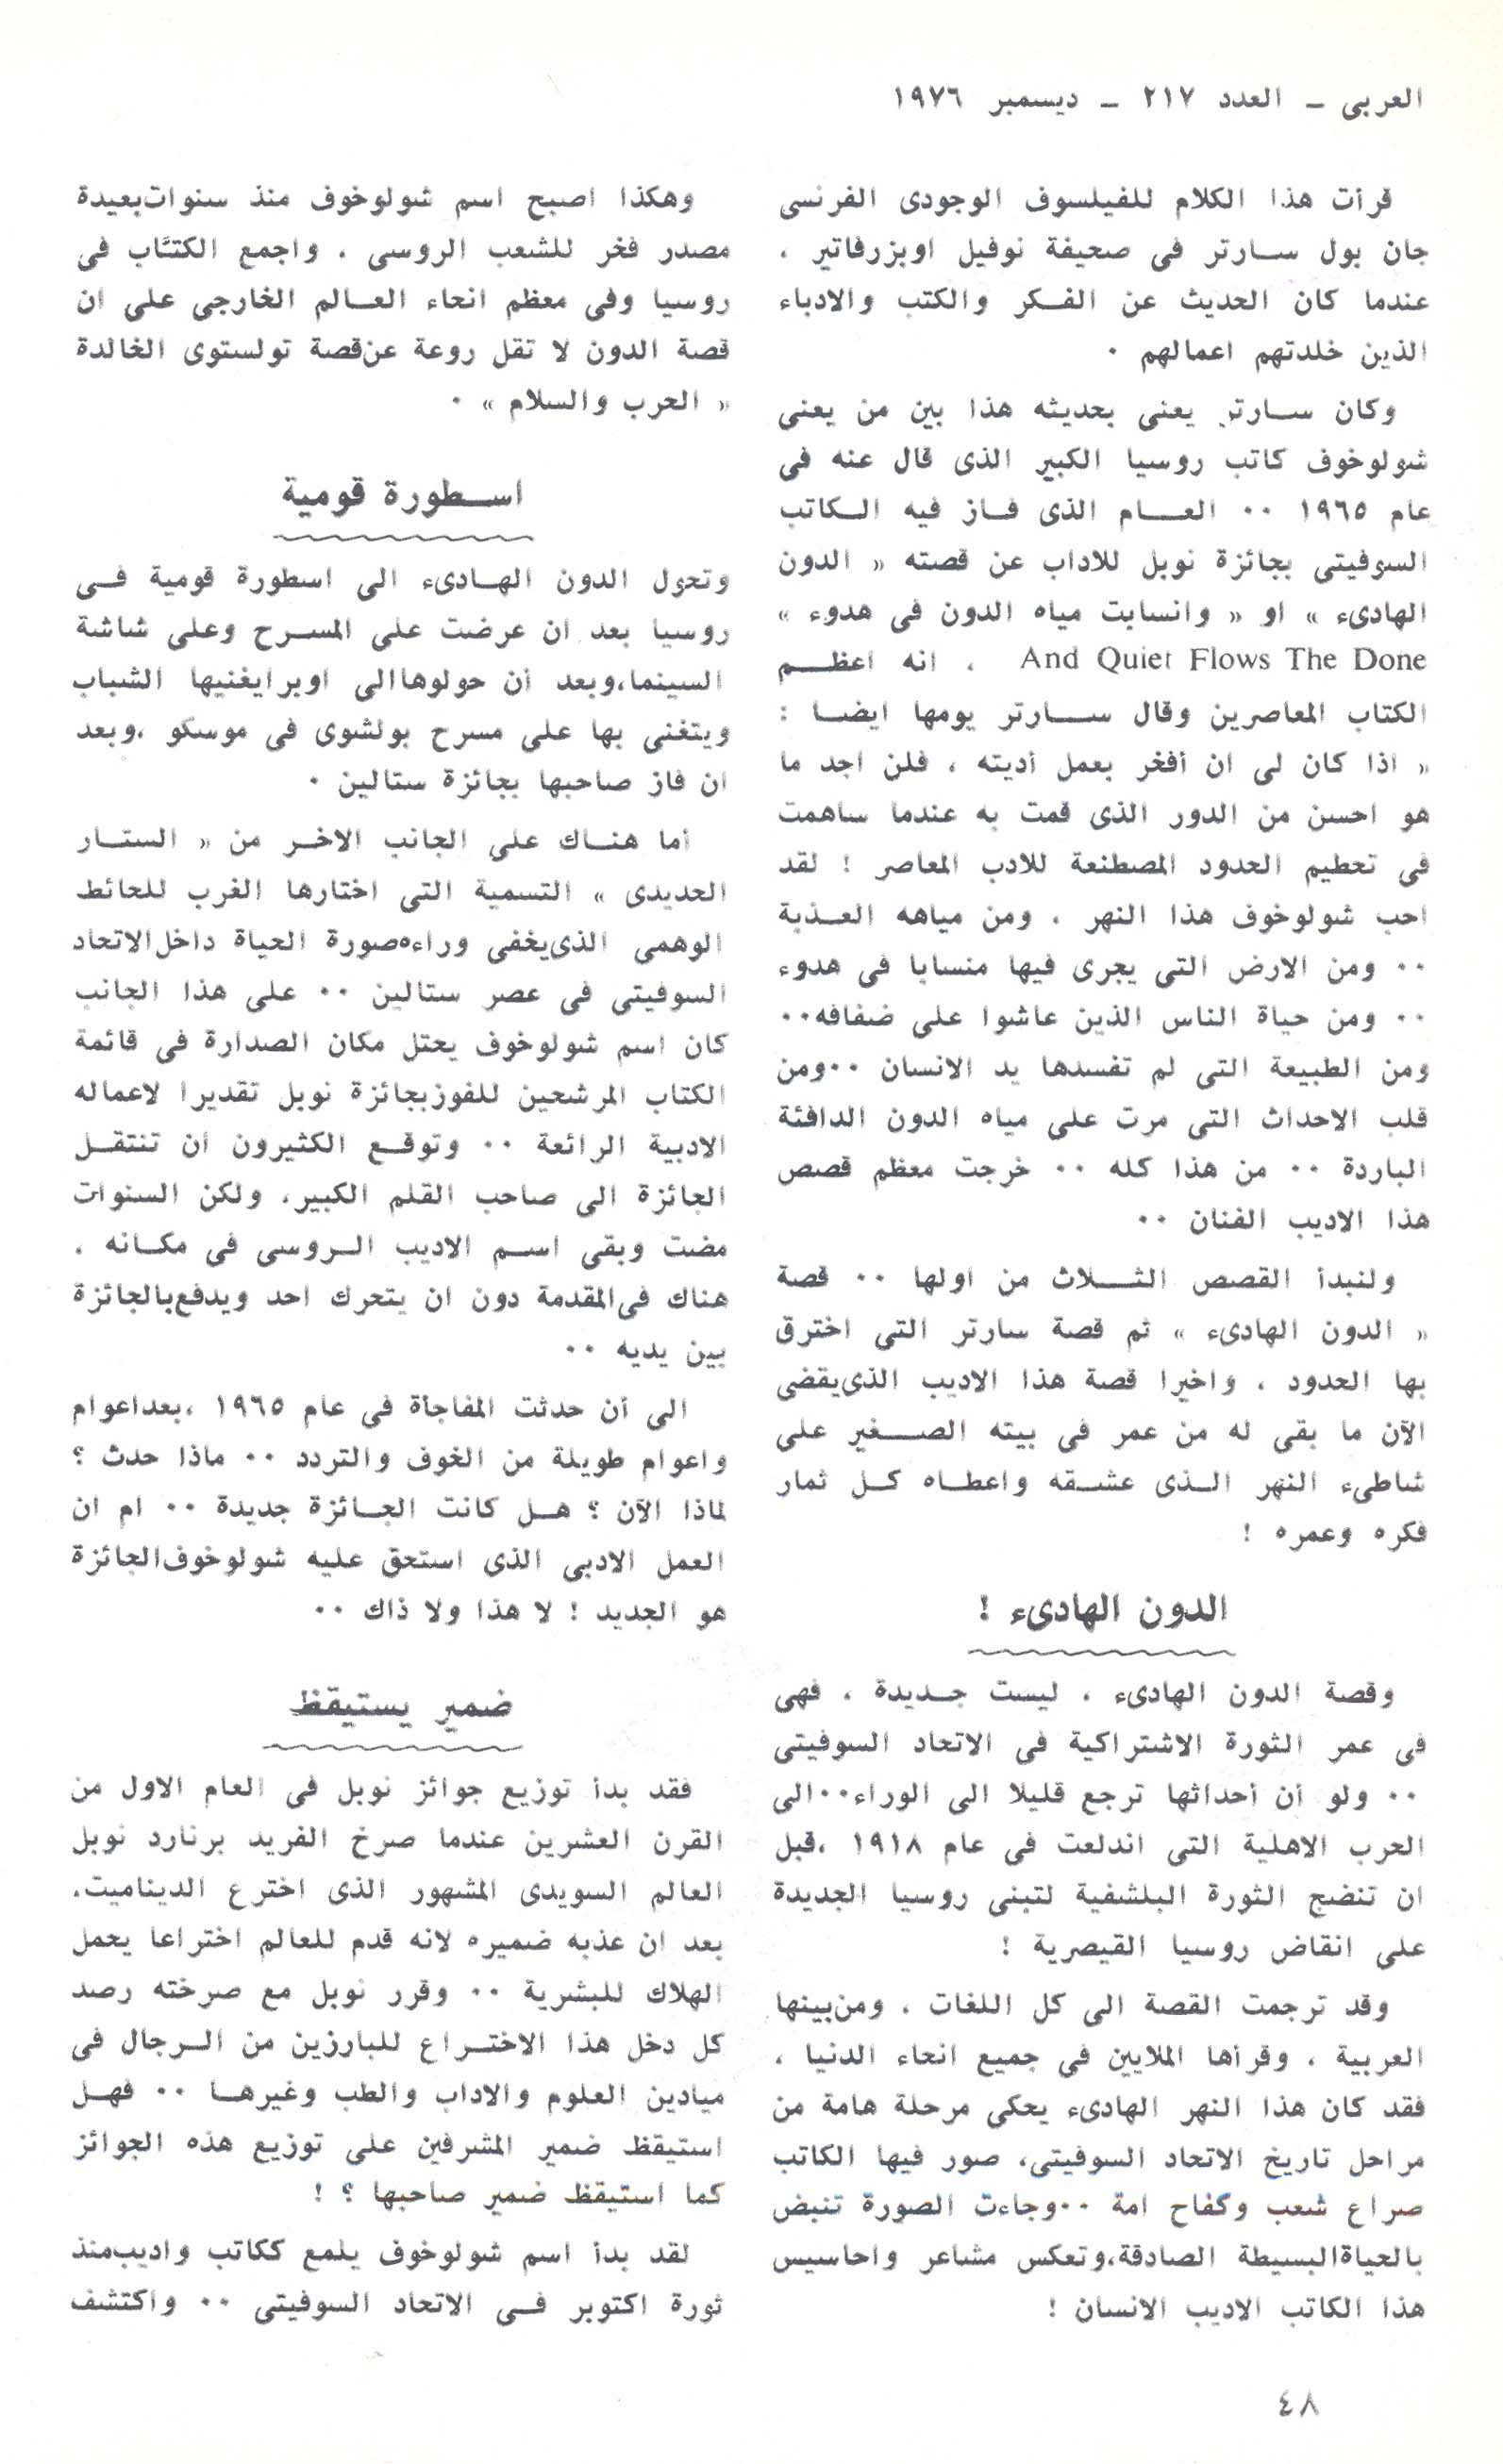 العربى - العدد ٢١٧ - ديسمبر ١٩٧٦
قرأت هذا الكلام للفيلسوف الوجودى الفرنسى
جان بول سارتر فى صحيفة نوفيل اوبزرفاتير ،
عندما كان الحديث عن الفكر والكتب والادباء
الذين خلدتهم اعمالهم ٠
وكان سارتر يعنى بحديثه هذا بين من يعنى
شولوخوف كاتب روسيا الكبير الذى قال عنه فى
عام ١٩٦٥ ٠٠ العام الذى فاز فيه الكاتب
السوفيتى بجائزة نوبل للاداب عن قصته « الدون
الهادىء » او « وانسابت مياه الدون فى هدوء »
And Quiet Flows The Done ، انه اعظم
الكتاب المعاصرين وقال سارتر يومها ايضا :
« اذا كان لى ان أفخر بعمل أديته ، فلن اجد ما
هو احسن من الدور الذى قمت به عندما ساهمت
فى تحطيم الحدود المصطنعة للادب المعاصر ! لقد
احب شولوخوف هذا النهر ، ومن مياهه العذبة
٠٠ ومن الارض التى يجرى فيها منسابا فى هدوء
٠٠ ومن حياة الناس الذين عاشوا على ضفافه٠٠
ومن الطبيعة التى لم تفسدها يد الانسان ٠٠ومن
قلب الاحداث التى مرت على مياه الدون الدافئة
الباردة ٠٠ من هذا كله ٠٠ خرجت معظم قصص
هذا الاديب الفنان ٠٠
ولنبدأ القصص الثلاث من اولها ٠٠ قصة
« الدون الهادىء » ثم قصة سارتر التى اخترق
بها الحدود ، واخيرا قصة هذا الاديب الذى يقضى
الآن ما بقى له من عمر فى بيته الصغير على
شاطىء النهر الذى عشقه واعطاه كل ثمار
فكره وعمره !
الدون الهادىء !
وقصة الدون الهادىء ، ليست جديدة ، فهى
فى عمر الثورة الاشتراكية فى الاتحاد السوفيتى
٠٠ ولو أن أحداثها ترجع قليلا الى الوراء٠٠الى
الحرب الاهلية التى اندلعت فى عام ١٩١٨ ،قبل
ان تنضج الثورة البلشفية لتبنى روسيا الجديدة
على انقاض روسيا القيصرية !
وقد ترجمت القصة الى كل اللغات ، ومن بينها
العربية ، وقرأها الملايين فى جميع انحاء الدنيا ،
فقد كان هذا النهر الهادىء يحكى مرحلة هامة من
مراحل تاريخ الاتحاد السوفيتى، صور فيها الكاتب
صراع شعب وكفاح امة ٠٠وجاءت الصورة تنبض
بالحياة البسيطة الصادقة،وتعكس مشاعر واحاسيس
هذا الكاتب الاديب الانسان !
وهكذا اصبح اسم شولوخوف منذ سنوات بعيدة
مصدر فخر للشعب الروسى ، واجمع الكتاب فى
روسيا وفى معظم انحاء العالم الخارجى على ان
قصة الدون لا تقل روعة عن قصة تولستوى الخالدة
« الحرب والسلام » ٠
اسطورة قومية
وتحول الدون الهادىء الى اسطورة قومية فى
روسيا بعد ان عرضت على المسرح وعلى شاشة
السينما،وبعد أن حولوها الى اوبرا يغنيها الشباب
ويتغنى بها على مسرح بولشوى فى موسكو ،وبعد
ان فاز صاحبها بجائزة ستالين ٠
أما هناك على الجانب الاخر من « الستار
الحديدى » التسمية التى اختارها الغرب للحائط
الوهمى الذى يخفى وراءه صورة الحياة داخل الاتحاد
السوفيتى فى عصر ستالين ٠٠ على هذا الجانب
كان اسم شولوخوف يحتل مكان الصدارة فى قائمة
الكتاب المرشحين للفوز بجائزة نوبل تقديرا لاعماله
الادبية الرائعة ٠٠ وتوقع الكثيرون ان تنتقل
الجائزة الى صاحب القلم الكبير، ولكن السنوات
مضت وبقى اسم الاديب الروسى فى مكانه ،
هناك فى المقدمة دون ان يتحرك احد ويدفع بالجائزة
بين يديه ٠٠
الى أن حدثت المفاجأة فى عام ١٩٦٥ ،بعد اعوام
واعوام طويلة من الخوف والتردد ٠٠ ماذا حدث ؟
لماذا الآن ؟ هل كانت الجائزة جديدة ٠٠ ام ان
العمل الادبى الذى استحق عليه شولوخوف الجائزة
هو الجديد ! لا هذا ولا ذاك ٠٠
ضمير يستيقظ
فقد بدأ توزيع جوائز نوبل فى العام الاول من
القرن العشرين عندما صرخ الفريد برنارد نوبل
العالم السويدى المشهور الذى اخترع الديناميت،
بعد ان عذبه ضميره لانه قدم للعالم اختراعا يحمل
الهلاك للبشرية ٠٠ وقرر نوبل مع صرخته رصد
كل دخل هذا الاختراع للبارزين من الرجال فى
ميادين العلوم والاداب والطب وغيرها ٠٠ فهل
استيقظ ضمير المشرفين على توزيع هذه الجوائز
كما استيقظ ضمير صاحبها ؟ !
لقد بدأ اسم شولوخوف يلمع ككاتب واديب منذ
ثورة اكتوبر فى الاتحاد السوفيتى ٠٠ واكتشف
٤٨